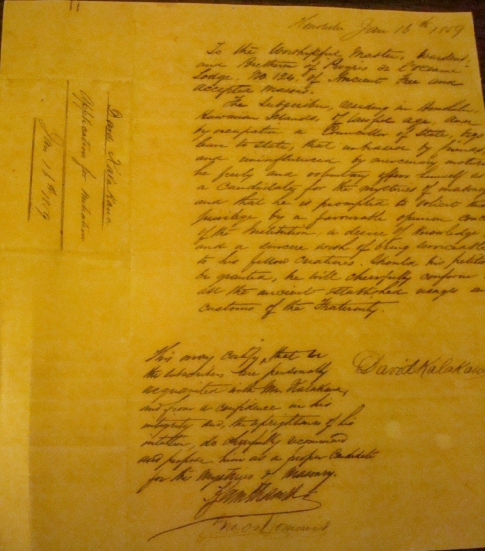 Honolulu Jan 16th 1859
To the Worshipful Master, Wardens
and Brethren of Progres de L'Oceanie
Lodge. No 124, of Ancient Free and
Accepted Masons.
The Subscriber, residing in Honolulu
Hawaiian Islands, of lawful age, and
by occupation a Councillor of State, begs
leave to state, that unbiased by friends
and uninfluenced by mercenary motives
he freely and voluntary offers himself as
a Candidate for the mysteries of masonry
and that he is prompted to solicit this
privilege, by a favourable opinion
of the Institution a desire of knowledge
and a sincere wish of being serviceable
to his fellow creatures. Should his petition
be granted, he will cheerfully conform
all the ancient established usages
customs of the Fraternity.
David Kalakaua
This may certify, that we
the subscribers are personally
acquainted with Mr. Kalakaua,
and from a confidence in his
integrity and, the uprightness of his
intention, do cheerfully recommend
and propose him as a proper candidate
for the mysteries of Masonry.
David Kalakaua
Application for Initiation
Jan 16th 1859